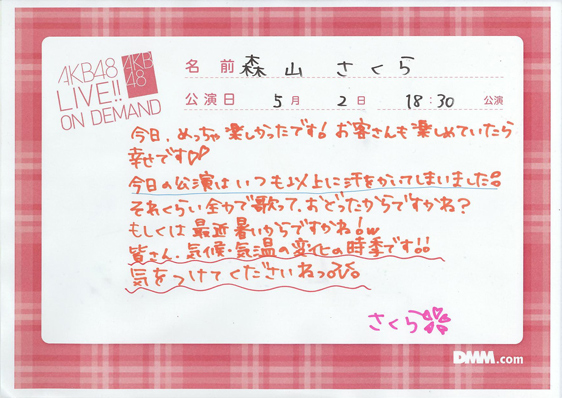 AKB48
LIVE!!
ON DEMAND
AKB
48
名前 森山 さくら
公演日 5月 2日 18:30 公演
今日、めっちゃ楽しかったです! お客さんも楽しめていたら
幸せです♡♡
今日の公演はいつも以上に汗をかいてしまいました。
それくらい全力で歌って、おどったからですかね?
もしくは最近暑いからですかね!w
皆さん、気候・気温の変化の時季です!!
気をつけてくださいねっ
さくら
DMM.com